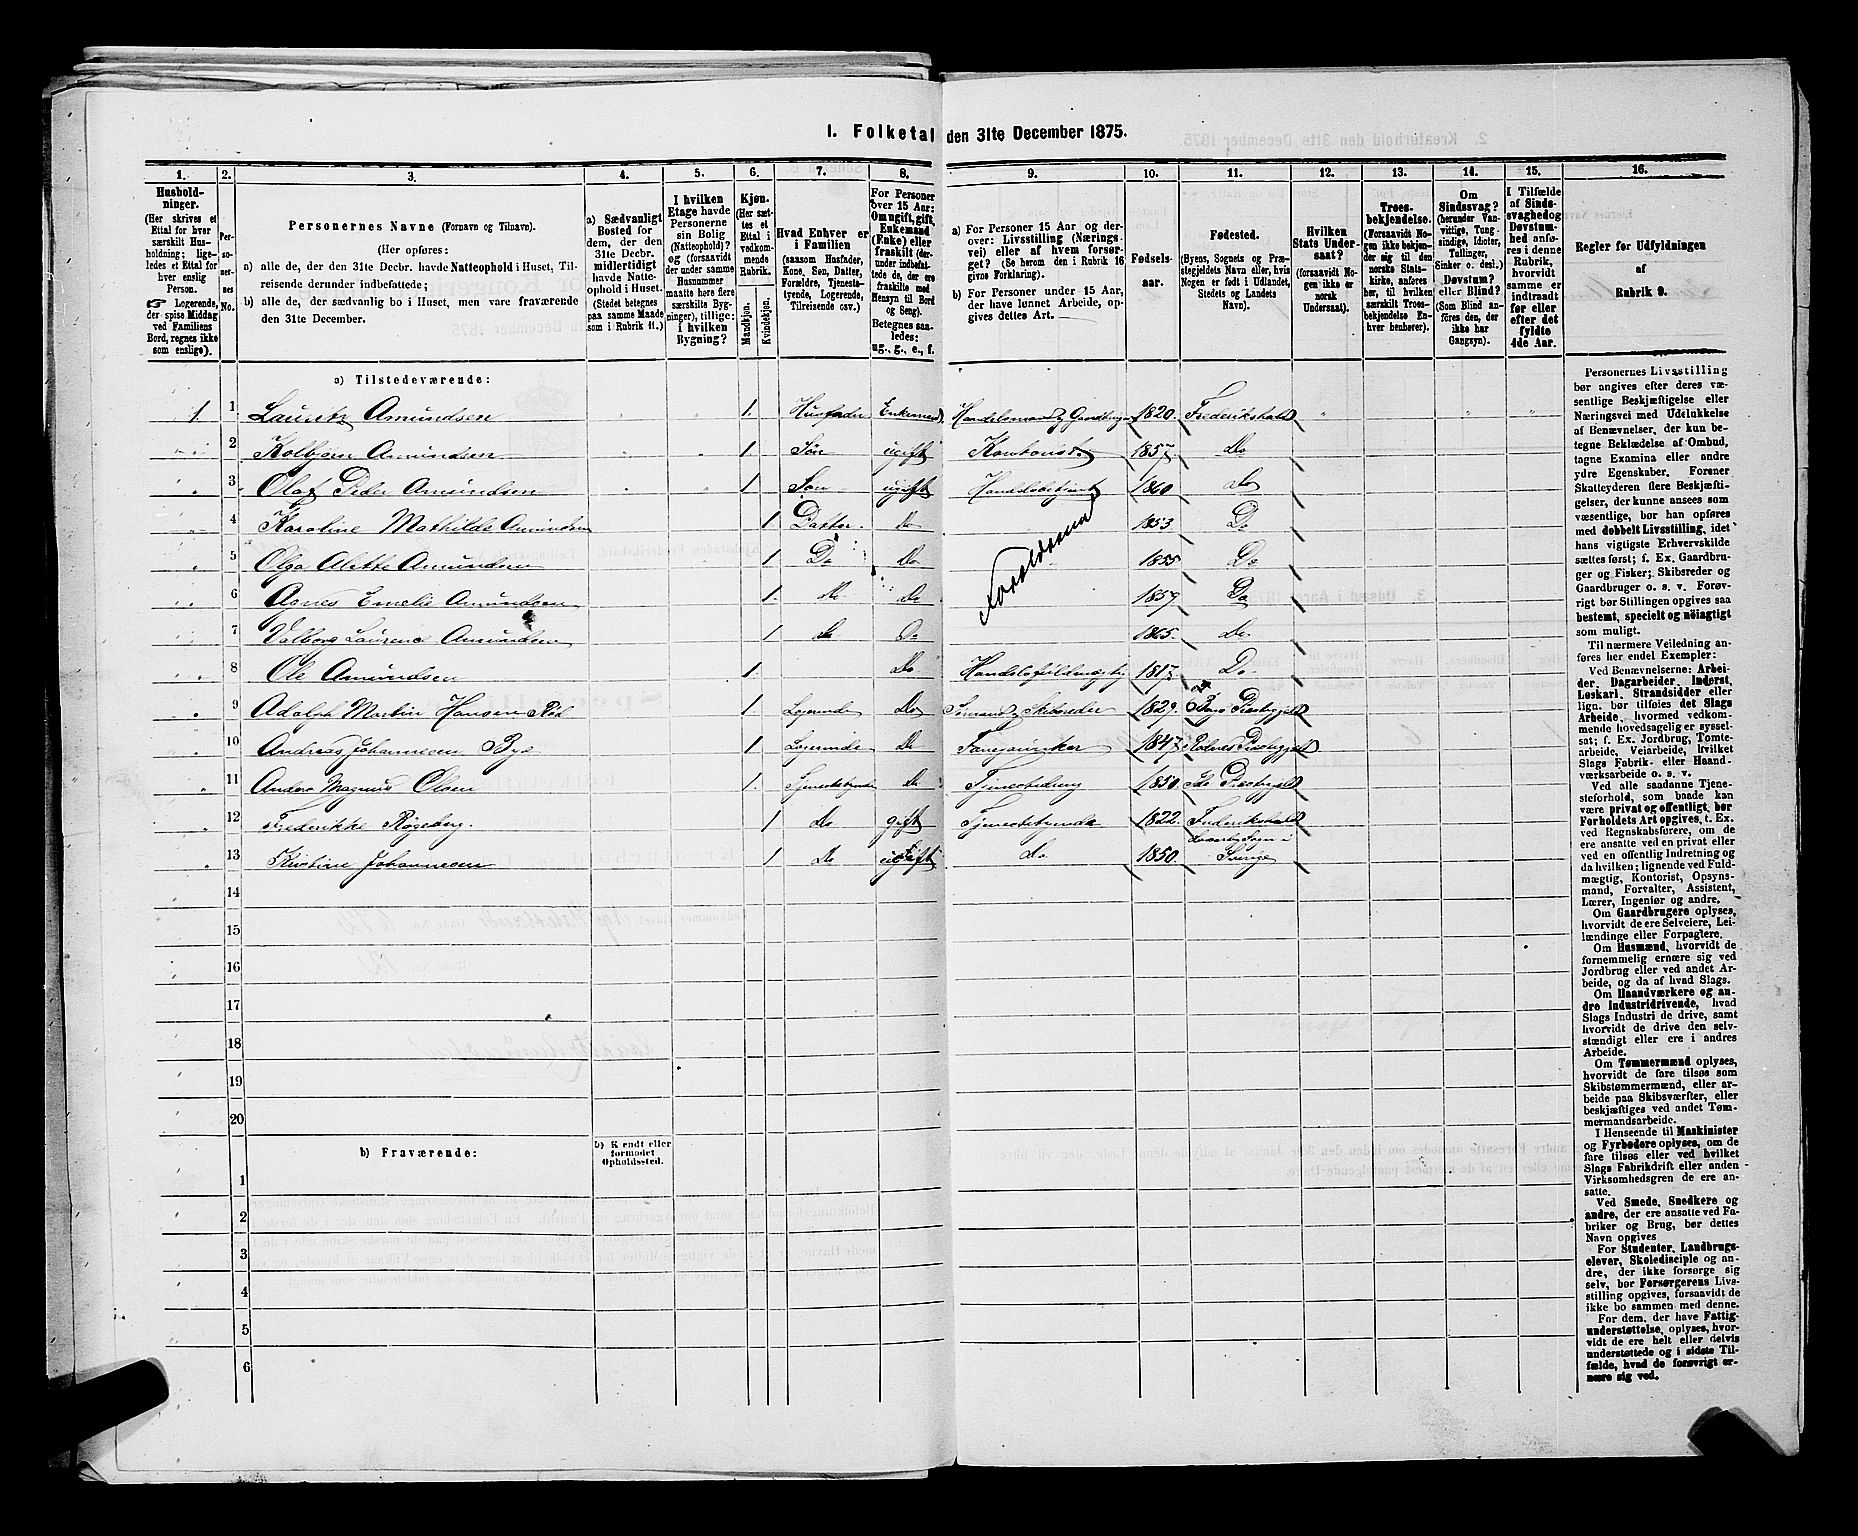 1. Folketal den 31te December 1875.
1. Husholdninger. (Her skrives et Ettal for hver særskilt Husholdning; ligeledes et Ettal for hver enslig Person. ☞ Logerende, der spise Middag ved Familiens Bord, regnes ikke som enslige).
2. Personernes No.
3. Personernes Navne (Fornavn og Tilnavn).
(Her opføres:
a) alle de, der den 31te Decbr. havde Natteophold i Huset, Tilreisende derunder indbefattede;
b) alle de, der sædvanlig bo i Huset, men vare fraværende den 31te December.
4. a) Sædvanligt Bosted for dem, der den 31te Decbr. midlertidigt havde Natteophold i Huset. (Stedet betegnes paa samme Maade som i Rubrik 11.)
5. I hvilken Etage havde Personerne sin Bolig (Natteophold)? og (forsaavidt der under samme Husnummer maatte høre flere særskilte Bygninger), tillige: i hvilken Bygning?
6. Kjøn. (Her sættes et Ettal i vedkommende Rubrik. Mandkjøn. Kvindekjøn.
7. Hvad Enhver er i Familien (saasom Husfader, Kone, Søn, Datter, Forældre, Tjenestetyende, Logerende, Tilreisende osv.)
8. For Personer over 15 Aar: Om ugift, gift, Enkemand (Enke) eller fraskilt (derunder indbefattede de, der ere fraskilte med Hensyn til Bord og Seng). Betegnes saaledes: ug., g., e., f.
9. a) For Personer 15 Aar og derover: Livsstilling (Næringsvei) eller af hvem forsørget? (Se herom den i Rubrik 16 givne Forklaring).
b) For Personer under 15 Aar, der have lønnet Arbeide, opgives dettes Art.
10. Fødselsaar.
11. Fødested. (Byens, Sognets og Præstegjeldets Navn eller, hvis Nogen er født i Udlandet, Stedets og Landets Navn).
12. Hvilken Stats Undersaat? (forsaavidt Nogen ikke er norsk Undersaat).
13. Troesbekjendelse. (Forsaavidt Nogen ikke bekjender sig til den norske Statskirke, anføres her, til hvilken særskilt Troesbekjendelse Enhver henhører).
14. Om Sindssvag? (herunder Vanvittige, Tungsindige, Idioter, Tullinger, Sinker o. desl.) Døvstum? eller Blind? (Som Blind anføres den, der ikke har Gangsyn).
15. I Tilfælde af Sindssvaghed og Døvstumhed anføres i denne Rubrik, hvorvidt samme er indtraadt før eller efter det fyldte 4de Aar.
16. Regler for Udfyldningen af Rubrik 9.
a) Tilstedeværende:
1 1 Lauritz Amundsen 1. Husfader Enkemand Handelsmand og Gaardbruger 1820. Frederikshald
2 Kolbjørn Amundsen 1 Søn ugift Kontorist 1857. Do
3 Olaf Peder Amundsen 1 Søn ugift Handelsbetjent 1860 do
4 Karoline Mathilde Amundsen 1. Datter. Do 1853. Do
5 Olga Alette Amundsen 1 Do Do 1855 Do
6 Agnes Emelie Amundsen 1. Do Do 1859. Do
7 Valborg Laurence Amundsen 1 Do Do 1865. Do
8 Ole Amundsen 1. Do 1817. Do
9 Adolph Martin Hansen Rød 1. Logerende Do Sømand og Skibsreder 1829. Præstegjeld
10 Andreas Johannesen Bye 1 Logerende Do 1847. Præstegjeld
11 Anders Magnus Olsen 1. Tjenestetyende Do 1850. Præstegjeld
12 Frederikke Røgeberg. 1 Do gift Tjenestetyende 1822. Frederikshald
13 Kristine Johannesen 1 Do ugift do 1850. Sverige
14
15
16
17
18
19
20
b) Fraværende:
b) Kjendt eller formodet Opholdssted.
1
2
3
4
5
6
Personernes Livsstilling
bør angives efter deres væ-
sentlige Beskjæftigelse eller
Næringsvei med Udelukkelse
af Benævnelser, der kun be-
tegne Beklædelse af Ombud,
tagne Examina eller andre
ydre Egenskaber. Forener
Skatteyderen flere Beskjæfti-
gelser, der kunne ansees som
væsentlige, bør han opføres
med dobbelt Livsstilling, idet
hans vigtigste Erhvervskilde
sættes først; f. Ex. Gaardbru-
ger og Fisker; Skibsreder og
Gaardbruger o. s. v. Forøv-
rigt bør Stillingen opgives saa
bestemt, specielt og nøiagtigt
som muligt.
Til nærmere Veiledning an-
føres her endel Exempler:
Ved Benævnelserne: Arbei-
der, Dagarbeider, Inderst,
Løskarl, Strandsidder eller
lign. bør tilføies det Slags
Arbeide, hvormed vedkom-
mende hovedsagelig er syssel-
sat; f. Ex. Jordbrug, Tømte-
arbeide, Veiarbeide, hvilket
Slags Fabrik- eller Haand-
værksarbeide o. s. v.
Ved alle saadanne Tjene-
steforhold, som baade kan
være privat og offentligt, bør
Forholdets Art opgives, t. Ex.
ved Regnskabsførere, om de
ere ansatte ved en privat eller
ved en offentlig Indretning og
da hvilken; lignende ved Fuld-
mægtig, Kontorist, Opsyns-
mand, Forvalter, Assistent,
Lærer, Ingeniør og andre.
Om Gaardbrugere oplyses,
hvorvidt de ere Selveiere, Lei-
lændinge eller Forpagtere.
Om Husmænd, hvorvidt de
fornemmelig ernære sig ved
Jordbrug eller ved andet Ar-
beide, og da af hvad Slags.
Om Haandværkere og an-
dre Industridrivende, hvad
Slags Industri de drive, samt
hvorvidt de drive den selv-
stændigt eller ere i andres
Arbeide.
Om Tømmermænd oplyses,
hvorvidt de fare tilsøs som
Skibstømmermænd, eller ar-
beide paa Skibsværfter, eller
beskjæftiges ved andet Tøm-
mermandsarbeide.
I Henseende til Maskinister
og Fyrbødere oplyses, om de
fare tilsøs eller ved hvilket
Slags Fabrikdrift eller anden
Virksomhedsgren de ere an-
satte.
Ved Smede, Snedkere og
andre, der ere ansatte ved Fa-
briker og Brug, bør dettes
Navn opgives
For Studenter, Landbrugs-
elever, Skoledisciple og an-
dre, der ikke forsørge sig
selv, bør Forsørgerens Livs-
stilling opgives, forsaavidt de
ikke bo sammen med denne.
For dem, der have Fattig-
understøttelse, oplyses, hvor-
vidt de ere helt eller delvis
understøttede og i sidste Til-
fælde, hvad de forøvrigt er-
nære sig ved.